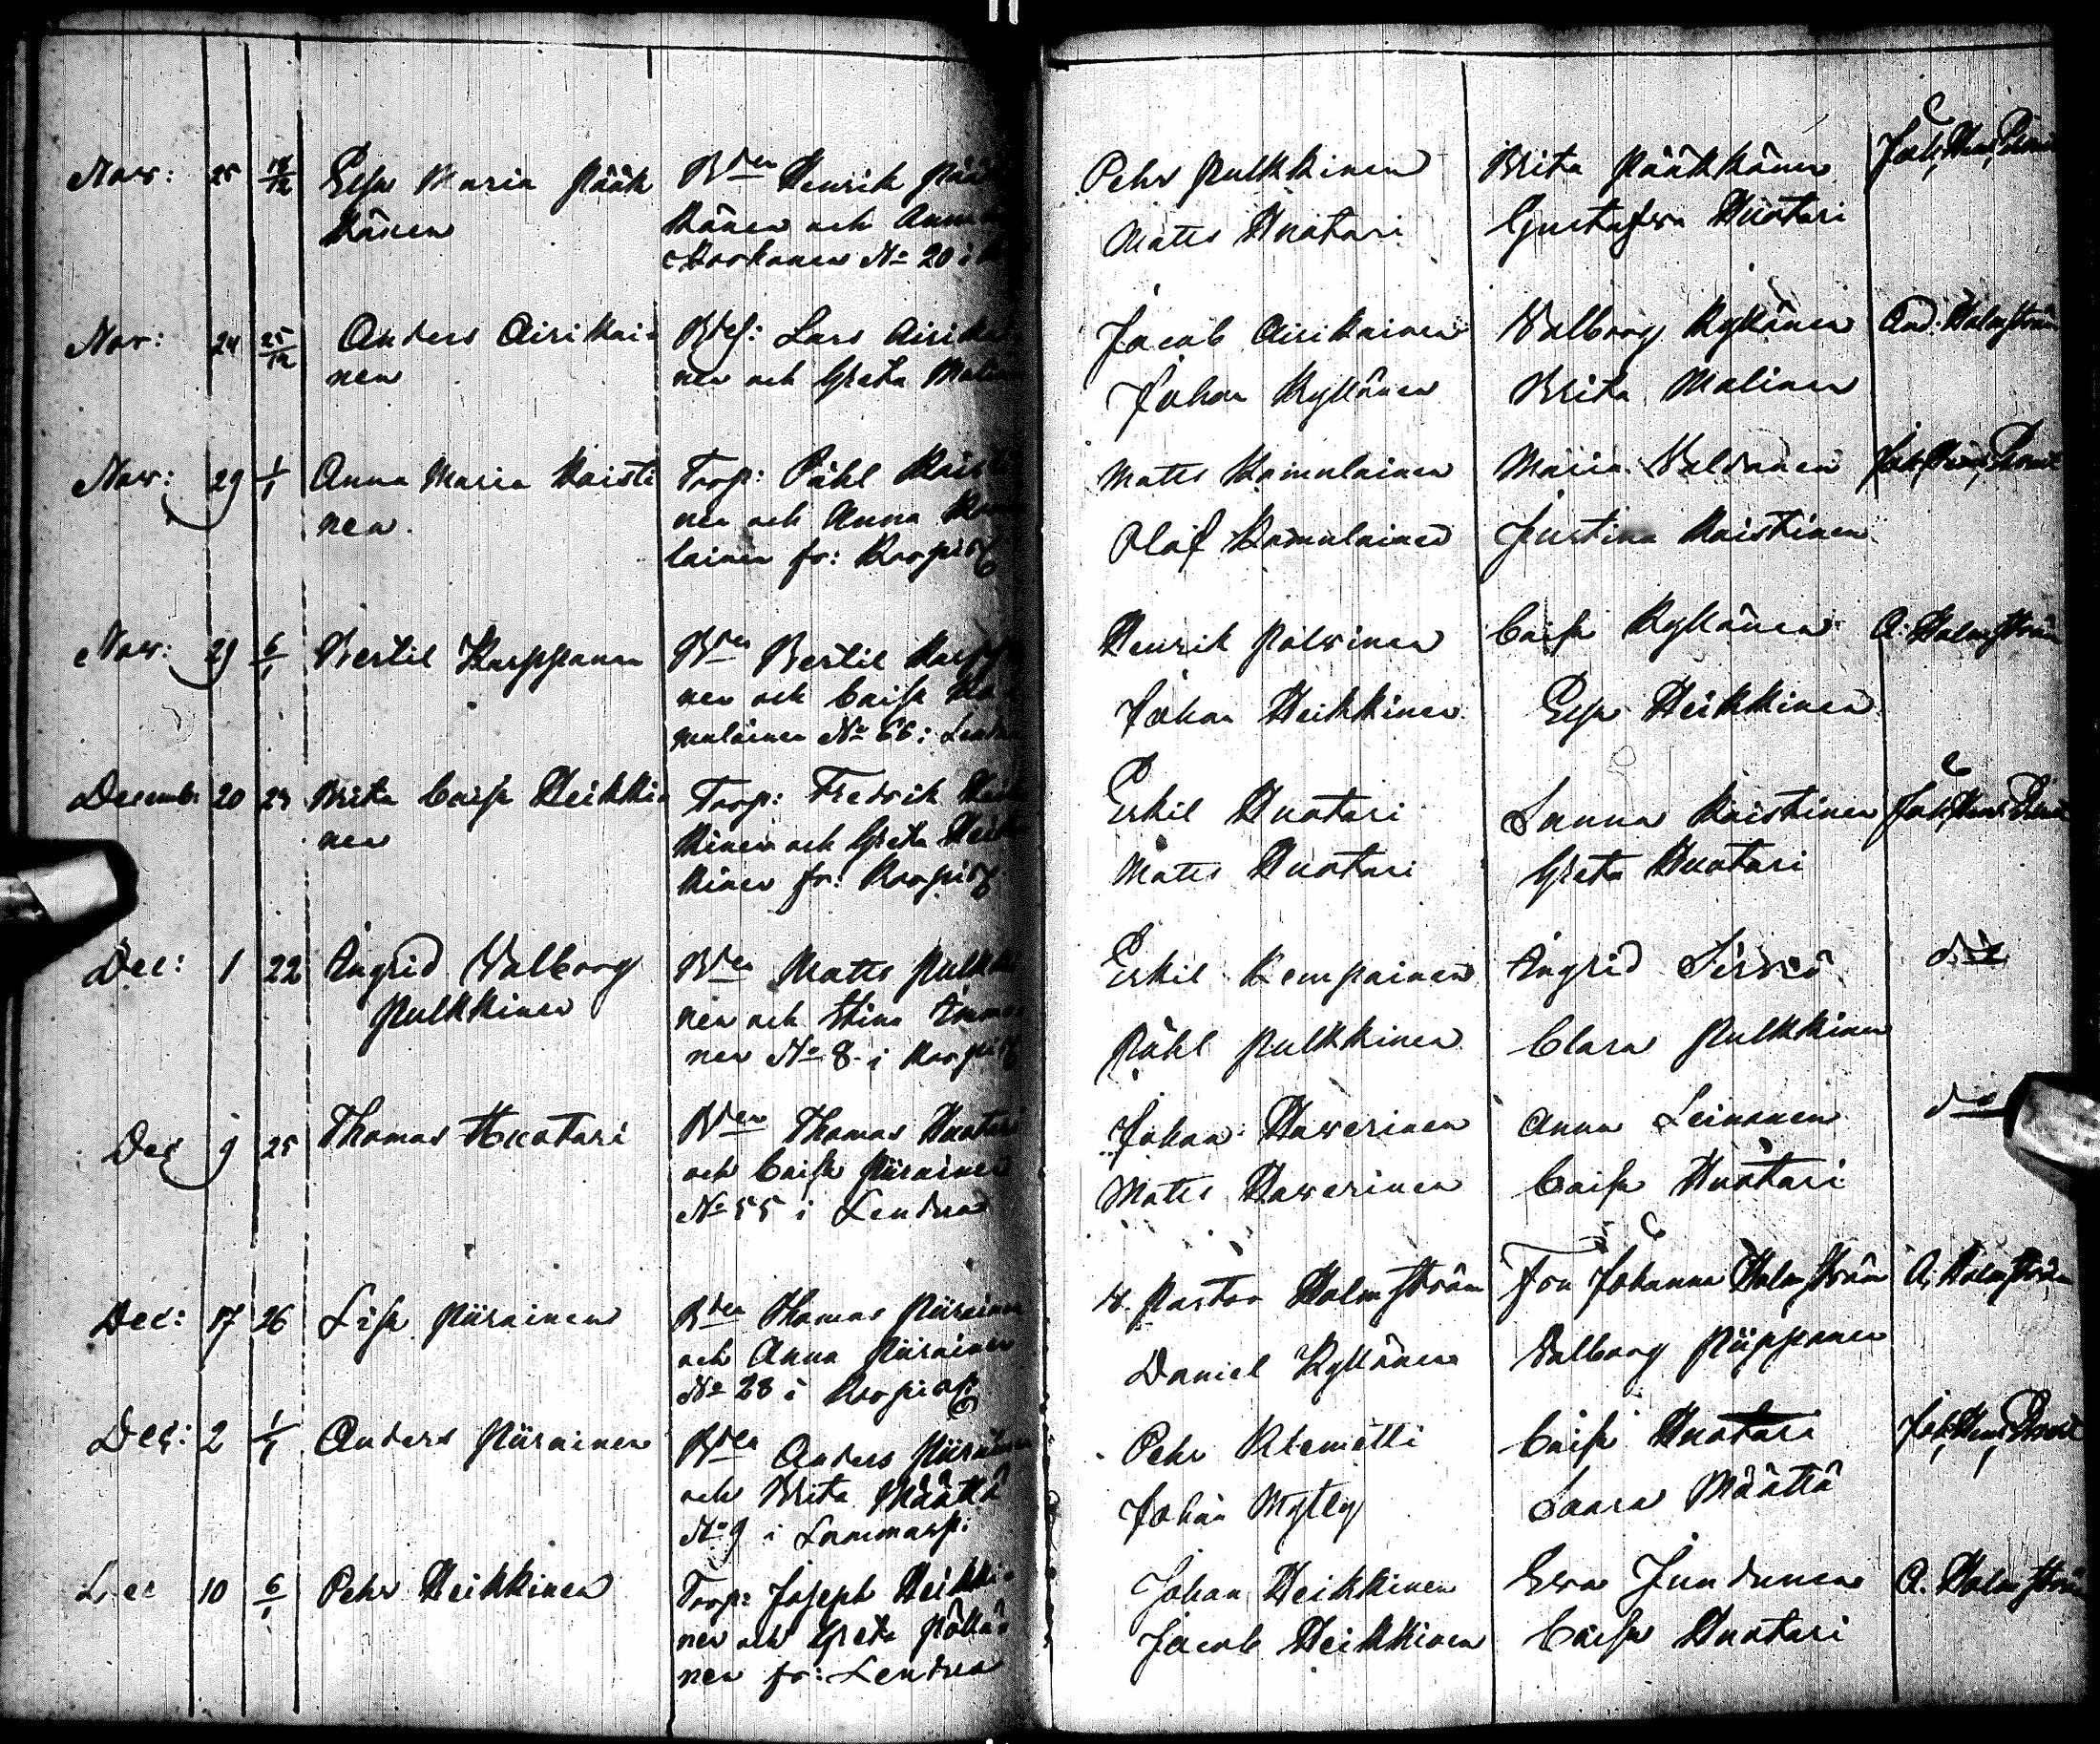 Nov: 25 18/12 Elsa Maria Pääk
känen
Bden Henrik Pääk
känen och Anna
Korkonen No 20 i
Pehr Pulkkinen
Matts Huotari
Brita Pääkkänen
Gustafva Huotari
Nov: 24 25/12 Anders Airikai-
nen
Lars Airikai
nen och Greta Malinen
Jacob Airikainen
Johan Kyllönen
Walborg Kyllönen
Brita Malinen
And: Holmström
Nov: 29 1/1 Anna Maria Kaisti
nen
Torp: Påhl Kaisti
nen och Anna Kamu
lainen fr:
Matts Kamulainen
Olof Kamulainen
Maria
Justina Kaistinen
Nov: 29 6/1 Bertil Karppanen
Bden Bertil Karppa
nen och Caisa Ka
mulainen No 66 i Lentua
Henrik Polvinen
Johan Heikkinen
Caisa Kyllönen
Elsa Heikkinen
A: Holmström
Decemb: 20 25 Brita Caisa Heikki-
nen
Torp: Fredrik Heik
kinen och Greta Heik
kinen fr:
Eskil Huotari
Matts Huotari
Sanna Kaistinen
Greta Huotari
Dec: 1 22 Ingrid Walborg
Pulkkinen
Bden Matts Pulkki
nen och Stina
nen No 8 i
Eskil Kempainen
Påhl Pulkkinen
Ingrid Sirviö
Clara Pulkkinen
do
Dec 9 25 Thomas Huotari
Bden Thomas Huotari
och Caisa Piirainen
No 55 i Lentua
Johan Haverinen
Matts Haverinen
Anna Leinonen
Caisa Huotari
do
Dec: 17 26 Lisa Piirainen
Bden Thomas Piirainen
och Anna Piirainen
No 28 i
H. Pastor Holmström
Daniel Kyllönen
Fru Johanna Holmström
Walborg Piipponen
A. Holmström
Dec: 2 1/1 Anders Piirainen
Bden Anders Piirainen
och Brita Määttä
No 9 i Lammasp:
Pehr Klemetti
Johan Mylly
Caisa Huotari
Saara Määttä
Dec 10 6/1 Pehr Heikkinen
Torp: Joseph Heikki-
nen och Greta Pöllä
nen fr: Lentua
Johan Heikkinen
Jacob Heikkinen
Eva Juntunen
Caisa Huotari
A. Holmström